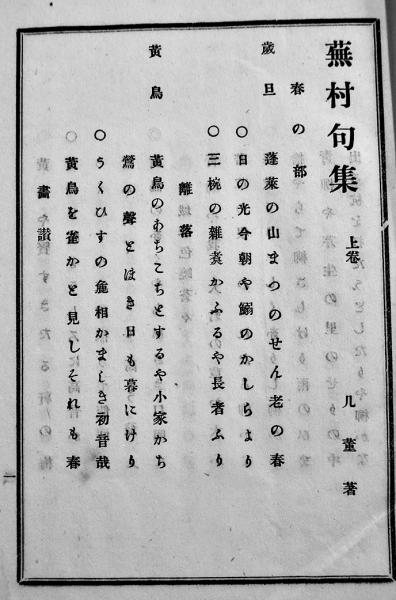 蕪村句集 上卷 几董著
春の部
歲旦 蓬萊の山まつりのせん老の春
○日の光今朝や鰯のかしらより
○三椀の雜煮かふるや長者ふり
離落
黃鳥 黃鳥のあちこちとするや小家かち
鶯の聲とほき日も暮にけり
○うくひすの麁相かましき初音哉
○黃鳥を雀かと見しそれも春
畫讃
一